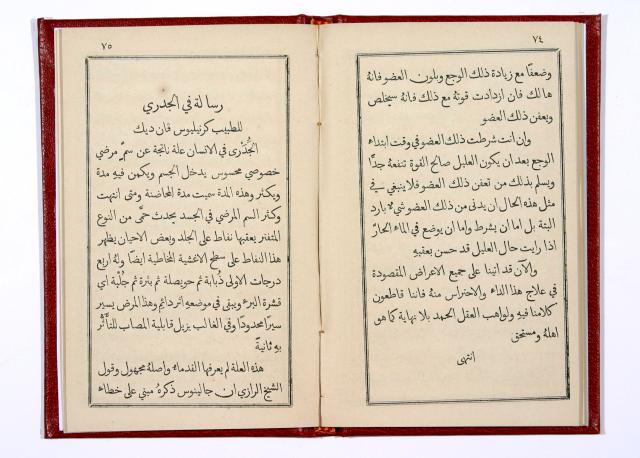 ٧٤
وضعفًا مع زيادة ذلك الوجع وبلون العضو فانهُ
هالك فان ازدادت قوتهُ مع ذلك فانهُ سيخلص
ويعفن ذلك العضو
وإن انت شرطت ذلك العضو في وقت ابتداء
الوجع بعد ان يكون العليل صالح القوة تنفعهُ جدًّا
ويسلم بذلك من تعفن ذلك العضو فلا ينبغي في
مثل هذه الحال ان يدنى من ذلك العضو شيء بارد
البتة بل اما ان يشرط واما ان يوضع في الماء الحارّ
اذا رايت حال العليل قد حسن بعقبهِ
والآن قد اتينا على جميع الاعراض المقصودة
في علاج هذا الداء والاحتراس منهُ فاننا قاطعون
كلامنا فيهِ ولواهب العقل الحمد بلا نهاية كما هو
اهلهُ ومستحق
انتهى
٧٥
رسالة في الجدري
للطبيب كرنيليوس فان ديك
الجُدَرى في الانسان علة ناتجة عن سمٍّ مرضي
خصوصي محسوس يدخل الجسم ويكمن فيهِ مدة
ويكثر وهذه المدة سميت مدة المحاضنة ومتى انتهت
وكثر السم المرضي في الجسد يحدث حمَّى من النوع
المتفتر يعقبها نفاط على الجلد وبعض الاحيان يظهر
هذا النفاط على سطح الاغشية المخاطية ايضًا ولهُ اربع
درجات الاولى ذُبابة ثم حويصلة ثم بثرة ثم جُلْبة اي
قشرة البرء ويبقى في موضعهِ اثر دائم وهذا المرض يسير
سيرًا محدودًا وفي الغالب يزيل قابلية المصاب للتأثُّر
بهِ ثانيةً
هذه العلة لم يعرفها القدماء واصلهُ مجهول وقول
الشيخ الرازي ان جالينوس ذكرهُ مبني على خطاء